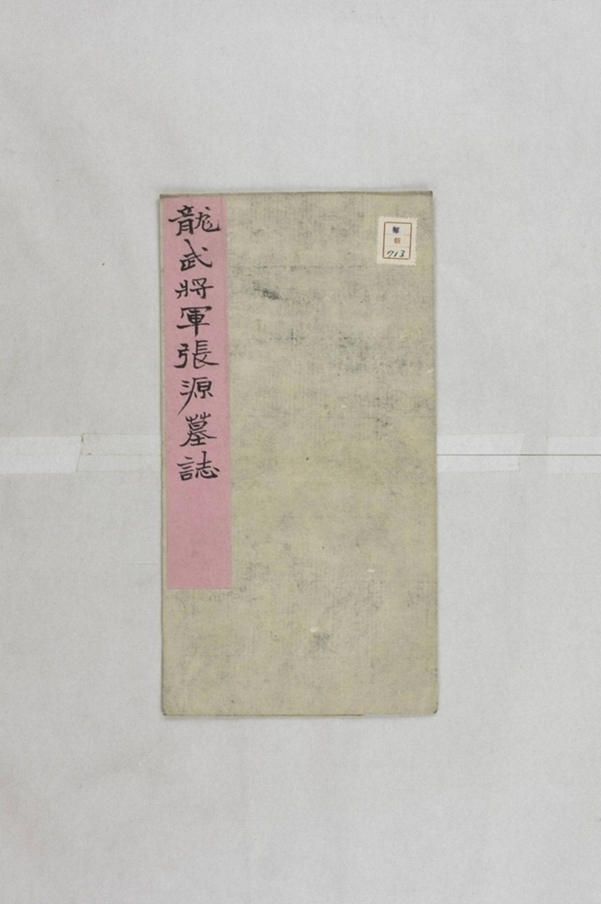 龍武将軍張源墓誌
713